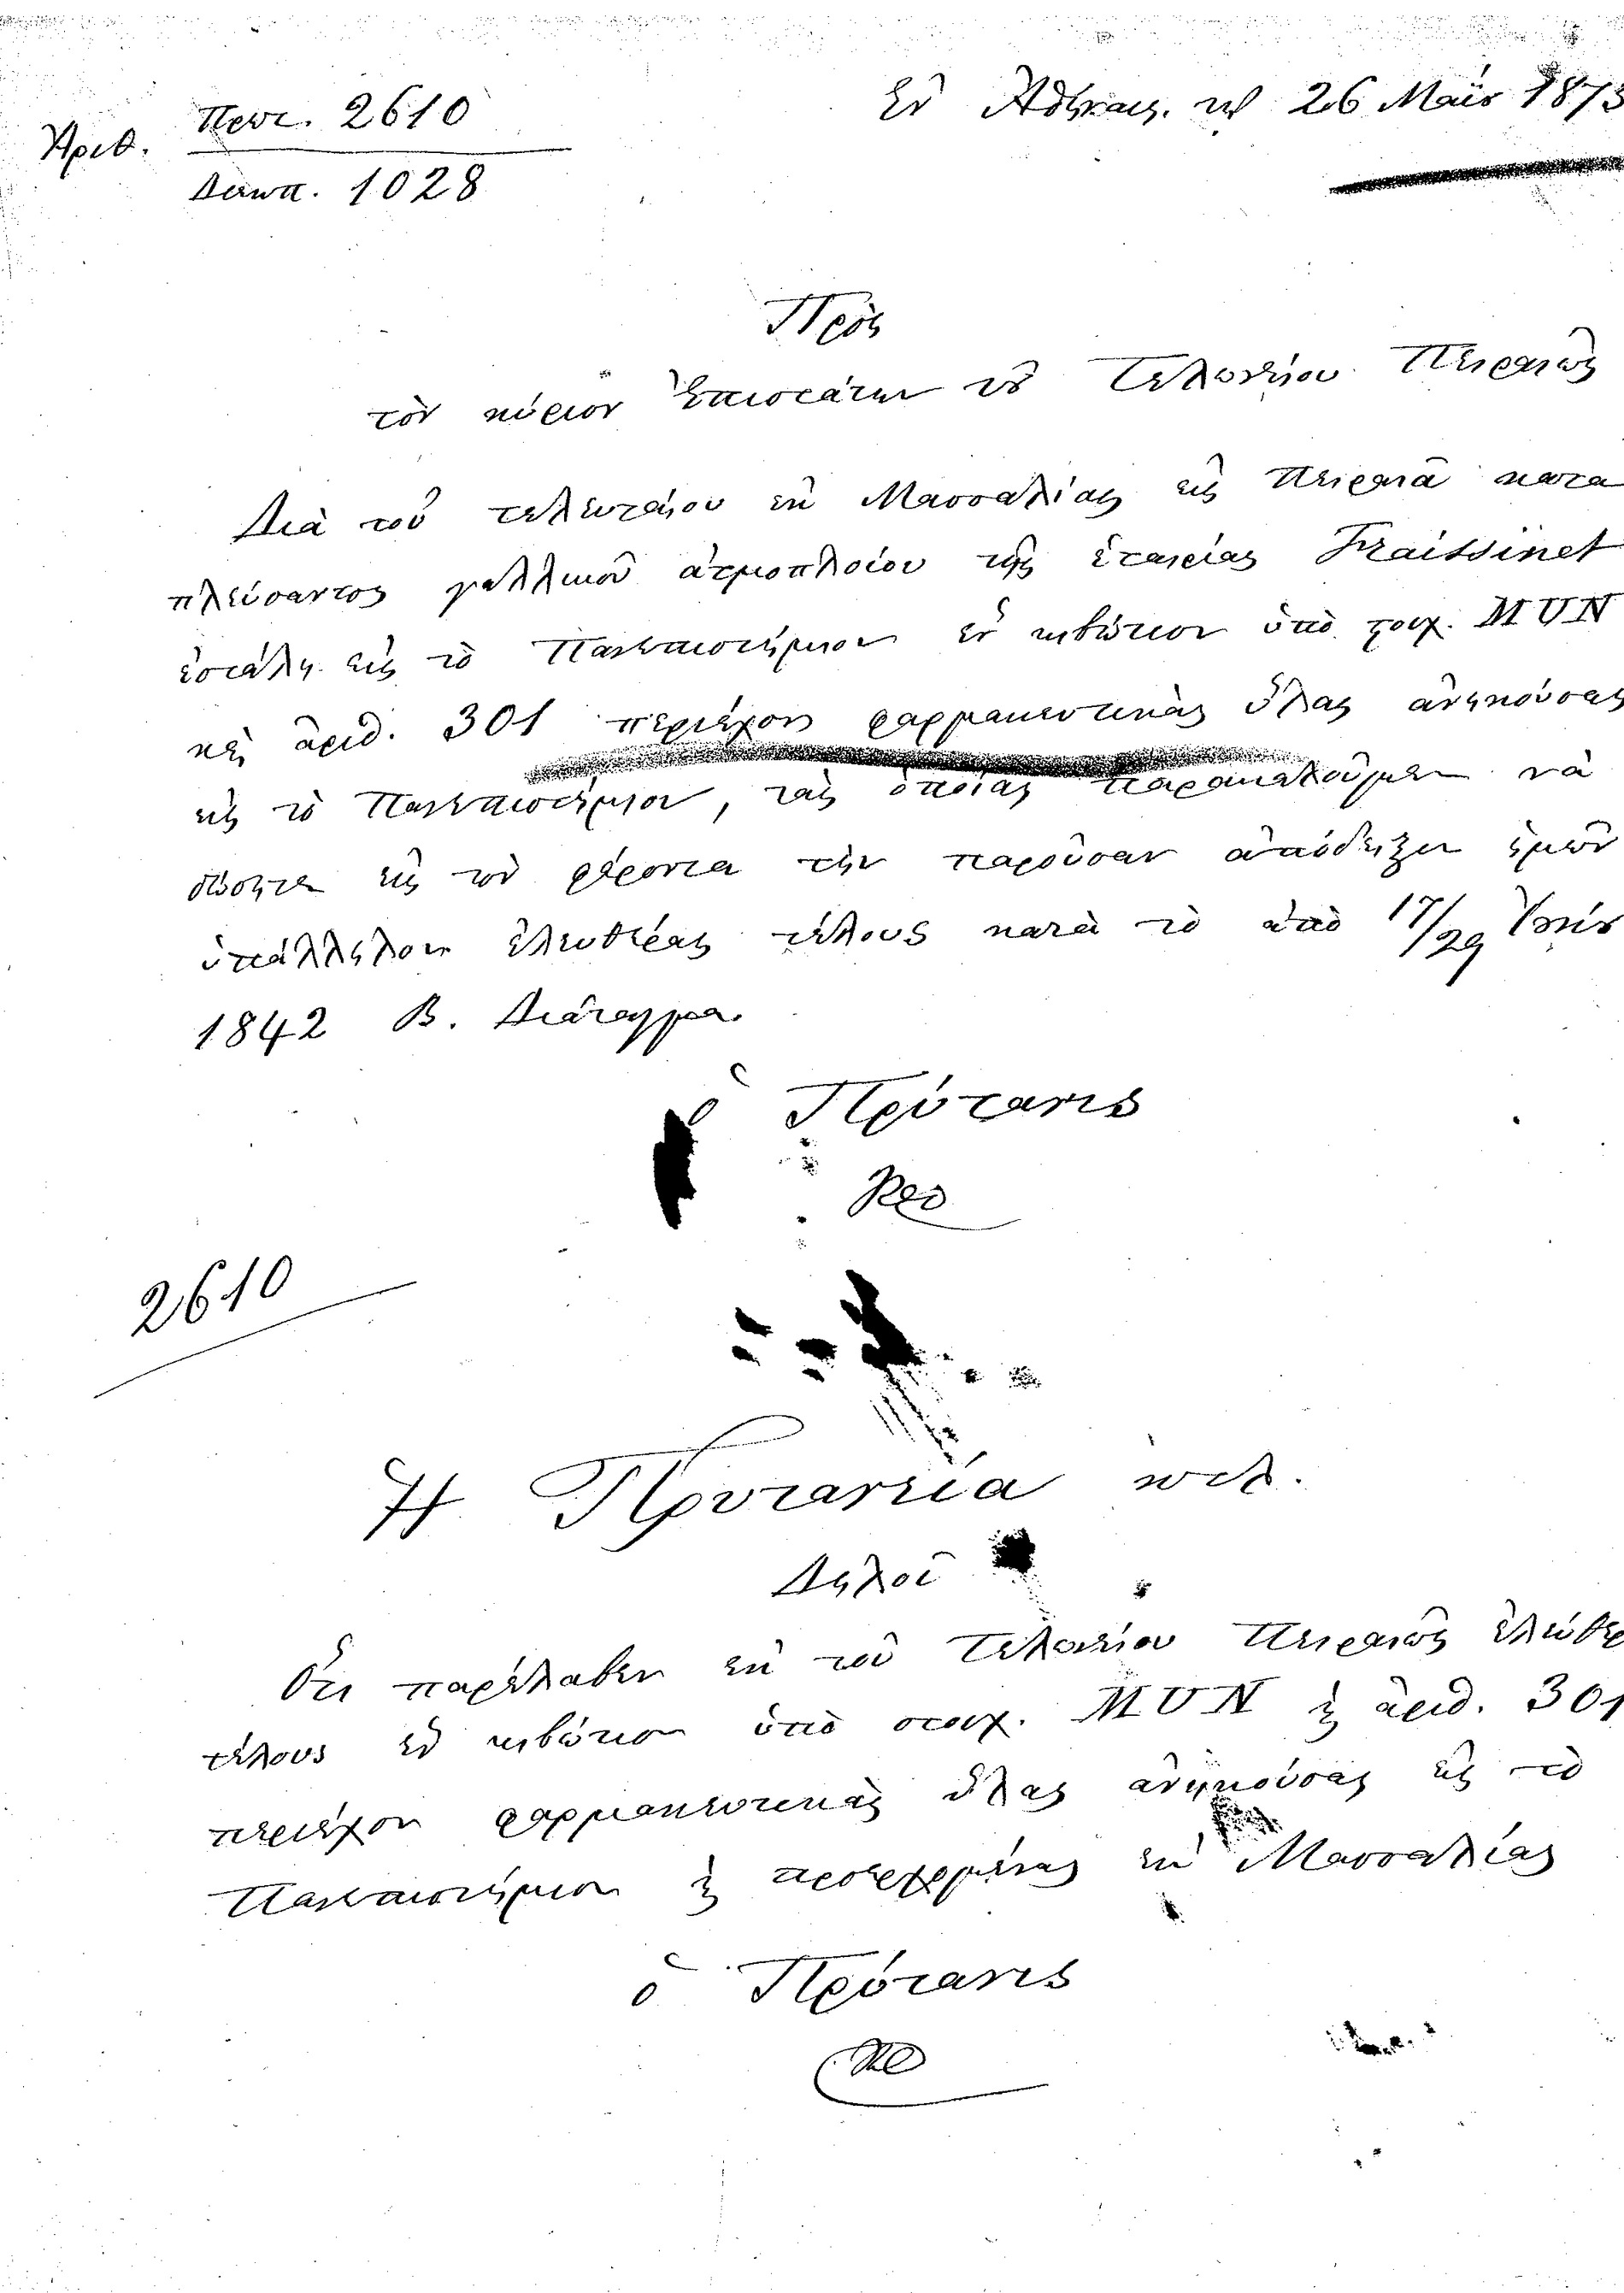 Ἐν Ἀθήναις τῇ 26 Μαΐου 1873
Ἀριθ. Πρωτ. 2610
Διεκπ. 1028
Πρὸς
τὸν κύριον Ἐπιστάτην τοῦ Τελωνείου Πειραιῶς
Διὰ τοῦ τελευταίου ἐκ Μασσαλίας εἰς Πειραιᾶ κατα
πλεύσαντος γαλλικοῦ ἀτμοπλοίου τῆς ἑταιρίας Fraissinet
ἐστάλη εἰς τὸ Πανεπιστήμιον ἓν κιβώτιον ὑπὸ στοιχ. MUN
καὶ ἀριθ. 301 περιέχον φαρμακευτικὰς ὕλας ἀνηκούσας
εἰς τὸ Πανεπιστήμιον, τὰς ὁποίας παρακαλοῦμεν νὰ
δώσητε εἰς τὸν φέροντα τὴν παροῦσαν ἀπόδειξιν ἡμῶν
ὑπάλληλον ἐλευθέρας τέλους κατὰ τὸ ἀπὸ 17/29
1842 Β. Διάταγμα
ὁ Πρύτανις
2610
Ἡ Πρυτανεία κτλ.
Δηλοῖ
Ὅτι παρέλαβεν ἐκ τοῦ Τελωνείου Πειραιῶς ἐλεύθερ
τέλους ἓν κιβώτιον ὑπὸ στοιχ. MUN καὶ ἀριθ. 301
περιέχον φαρμακευτικὰς ὕλας ἀνηκούσας εἰς τὸ
Πανεπιστήμιον καὶ προερχομένας ἐκ Μασσαλίας
ὁ Πρύτανις